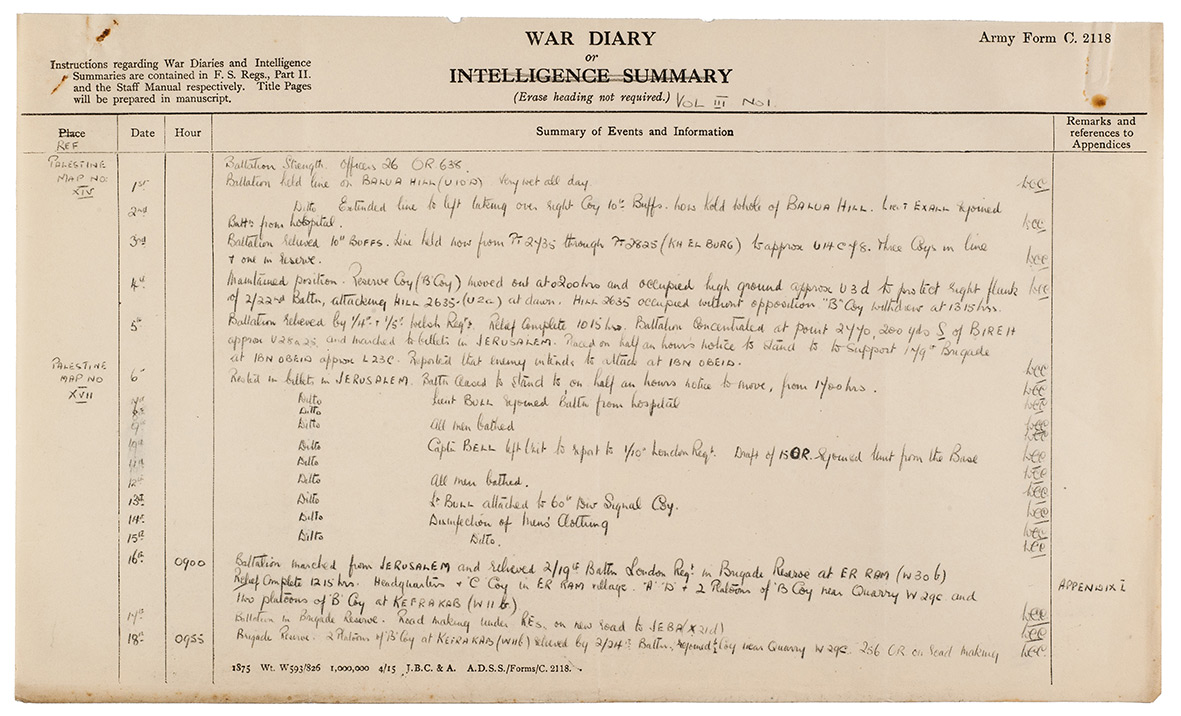 WAR DIARY
or
INTELLIGENCE SUMMARY
(Erase heading not required.) VOL III No 1.
Army Form C. 2118
Instructions regarding War Diaries and Intelligence
Summaries are contained in F. S. Regs., Part II.
and the Staff Manual respectively. Title Pages
will be prepared in manuscript.
Place Date Hour Summary of Events and Information Remarks and
REF references to
Appendices
PALESTINE Battalion Strength. Officers 26 OR 638.
MAP NO. XIV 1st Battalion held line on BALUA HILL (U10D). Very wet all day. WCC
2nd Ditto Extended line to left taking over right Coy 10th Buffs. now hold whole of BALUA HILL. Lieut EXALL rejoined
Battn from hospital. WCC
3rd Battalion relieved 10th BUFFS. Line held now from Pt 2435 through Pt 2825 (KH EL BURG) to approx U14C78. Three Coys in line
+ one in reserve. WCC
4th Maintained position. Reserve Coy ("B" Coy) moved out at 0200 hrs and occupied high ground approx U3d to protect right flank WCC
of 2/22nd Battn, attacking HILL 2635. (U2a) at dawn. HILL 2635 occupied without opposition "B" Coy withdrew at 1315 hrs.
5th Battalion relieved by 1/4th + 1/5th Welsh Regt. Relief complete 1015 hrs. Battalion concentrated at point 2770, 200 yds S of BIREH
approx U28a25, and marched to billets in JERUSALEM. Placed on half an hours notice to stand to to support 179th Brigade
at IBN OBEID approx L23C. Reported that enemy intends to attack at IBN OBEID. WCC
PALESTINE
MAP NO XVII 6th Rested in billets in JERUSALEM. Battn ceased to stand to, on half an hours notice to move, from 1700 hrs. WCC
7th Ditto Lieut BULL rejoined Battn from hospital WCC
8th Ditto WCC
9th Ditto All men bathed WCC
10th Ditto Captn BELL left Unit to report to 1/10th London Regt. Draft of 15 OR. rejoined Unit from the Base WCC
11th Ditto WCC
12th Ditto All men bathed. WCC
13th Ditto Lt BULL attached to 60th Div Signal Coy. WCC
14th Ditto Disinfection of Men's Clothing WCC
15th Ditto Ditto. WCC
16th 0900 Battalion marched from JERUSALEM and relieved 2/19th Battn London Regt in Brigade Reserve at ER RAM (W30b)
Relief Complete 1215 hrs. Headquarters + "C" Coy in ER RAM village. "A" "D" + 2 Platoons of "B" Coy near Quarry W29c. and APPENDIX I
two platoons of "B" Coy at KEFRAKAB (W11b) WCC
17th Battalion in Brigade Reserve. Road making under REs. on new road to JEBA (X21d) WCC
18th 0955 Brigade Reserve. 2 Platoons of "B" Coy at KEFRAKAB (W11b) relieved by 2/24th Battn, rejoined Coy near Quarry W29c. 256 OR on road making WCC
1875 Wt. W593/826 1,000,000 4/15 J.B.C. & A. A.D.S.S./Forms/C. 2118.